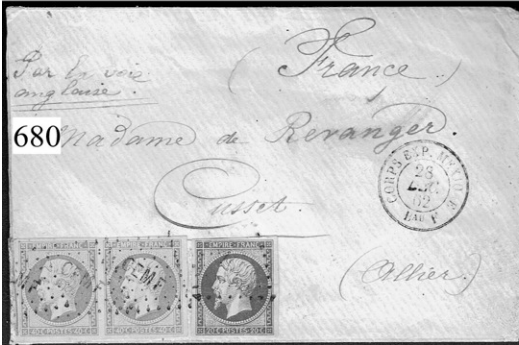 Par la voie
anglaise.
( France )
680
Madame de Revanger.
Cusset.
(Allier)
CORPS EXP. MEXIQUE
28
DEC.
62
BAU F
EMPIRE FRANC
40C POSTES 40C
EMPIRE FRANC
40C POSTES 40C
EMPIRE FRANC
20C POSTES 20C
CEMF
CEMF